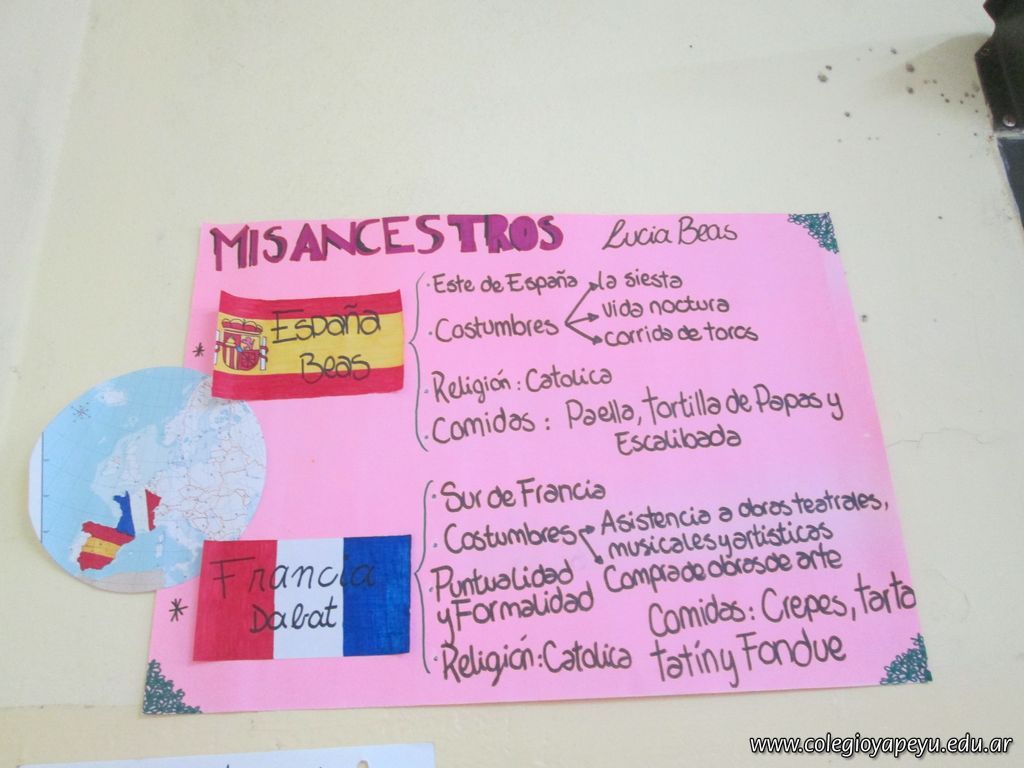 MIS ANCESTROS
Lucia Beas
España
Beas
· Este de España
· Costumbres
la siesta
vida noctura
corrida de toros
· Religión: Catolica
· Comidas: Paella, tortilla de Papas y
Escalibada
Francia
Dabat
· Sur de Francia
· Costumbres
Asistencia a obras teatrales,
musicales y artisticas
Compra de obras de arte
· Puntualidad
y Formalidad
· Religión: Catolica
Comidas: Crepes, tarta
tatín y Fondue
www.colegioyapeyu.edu.ar